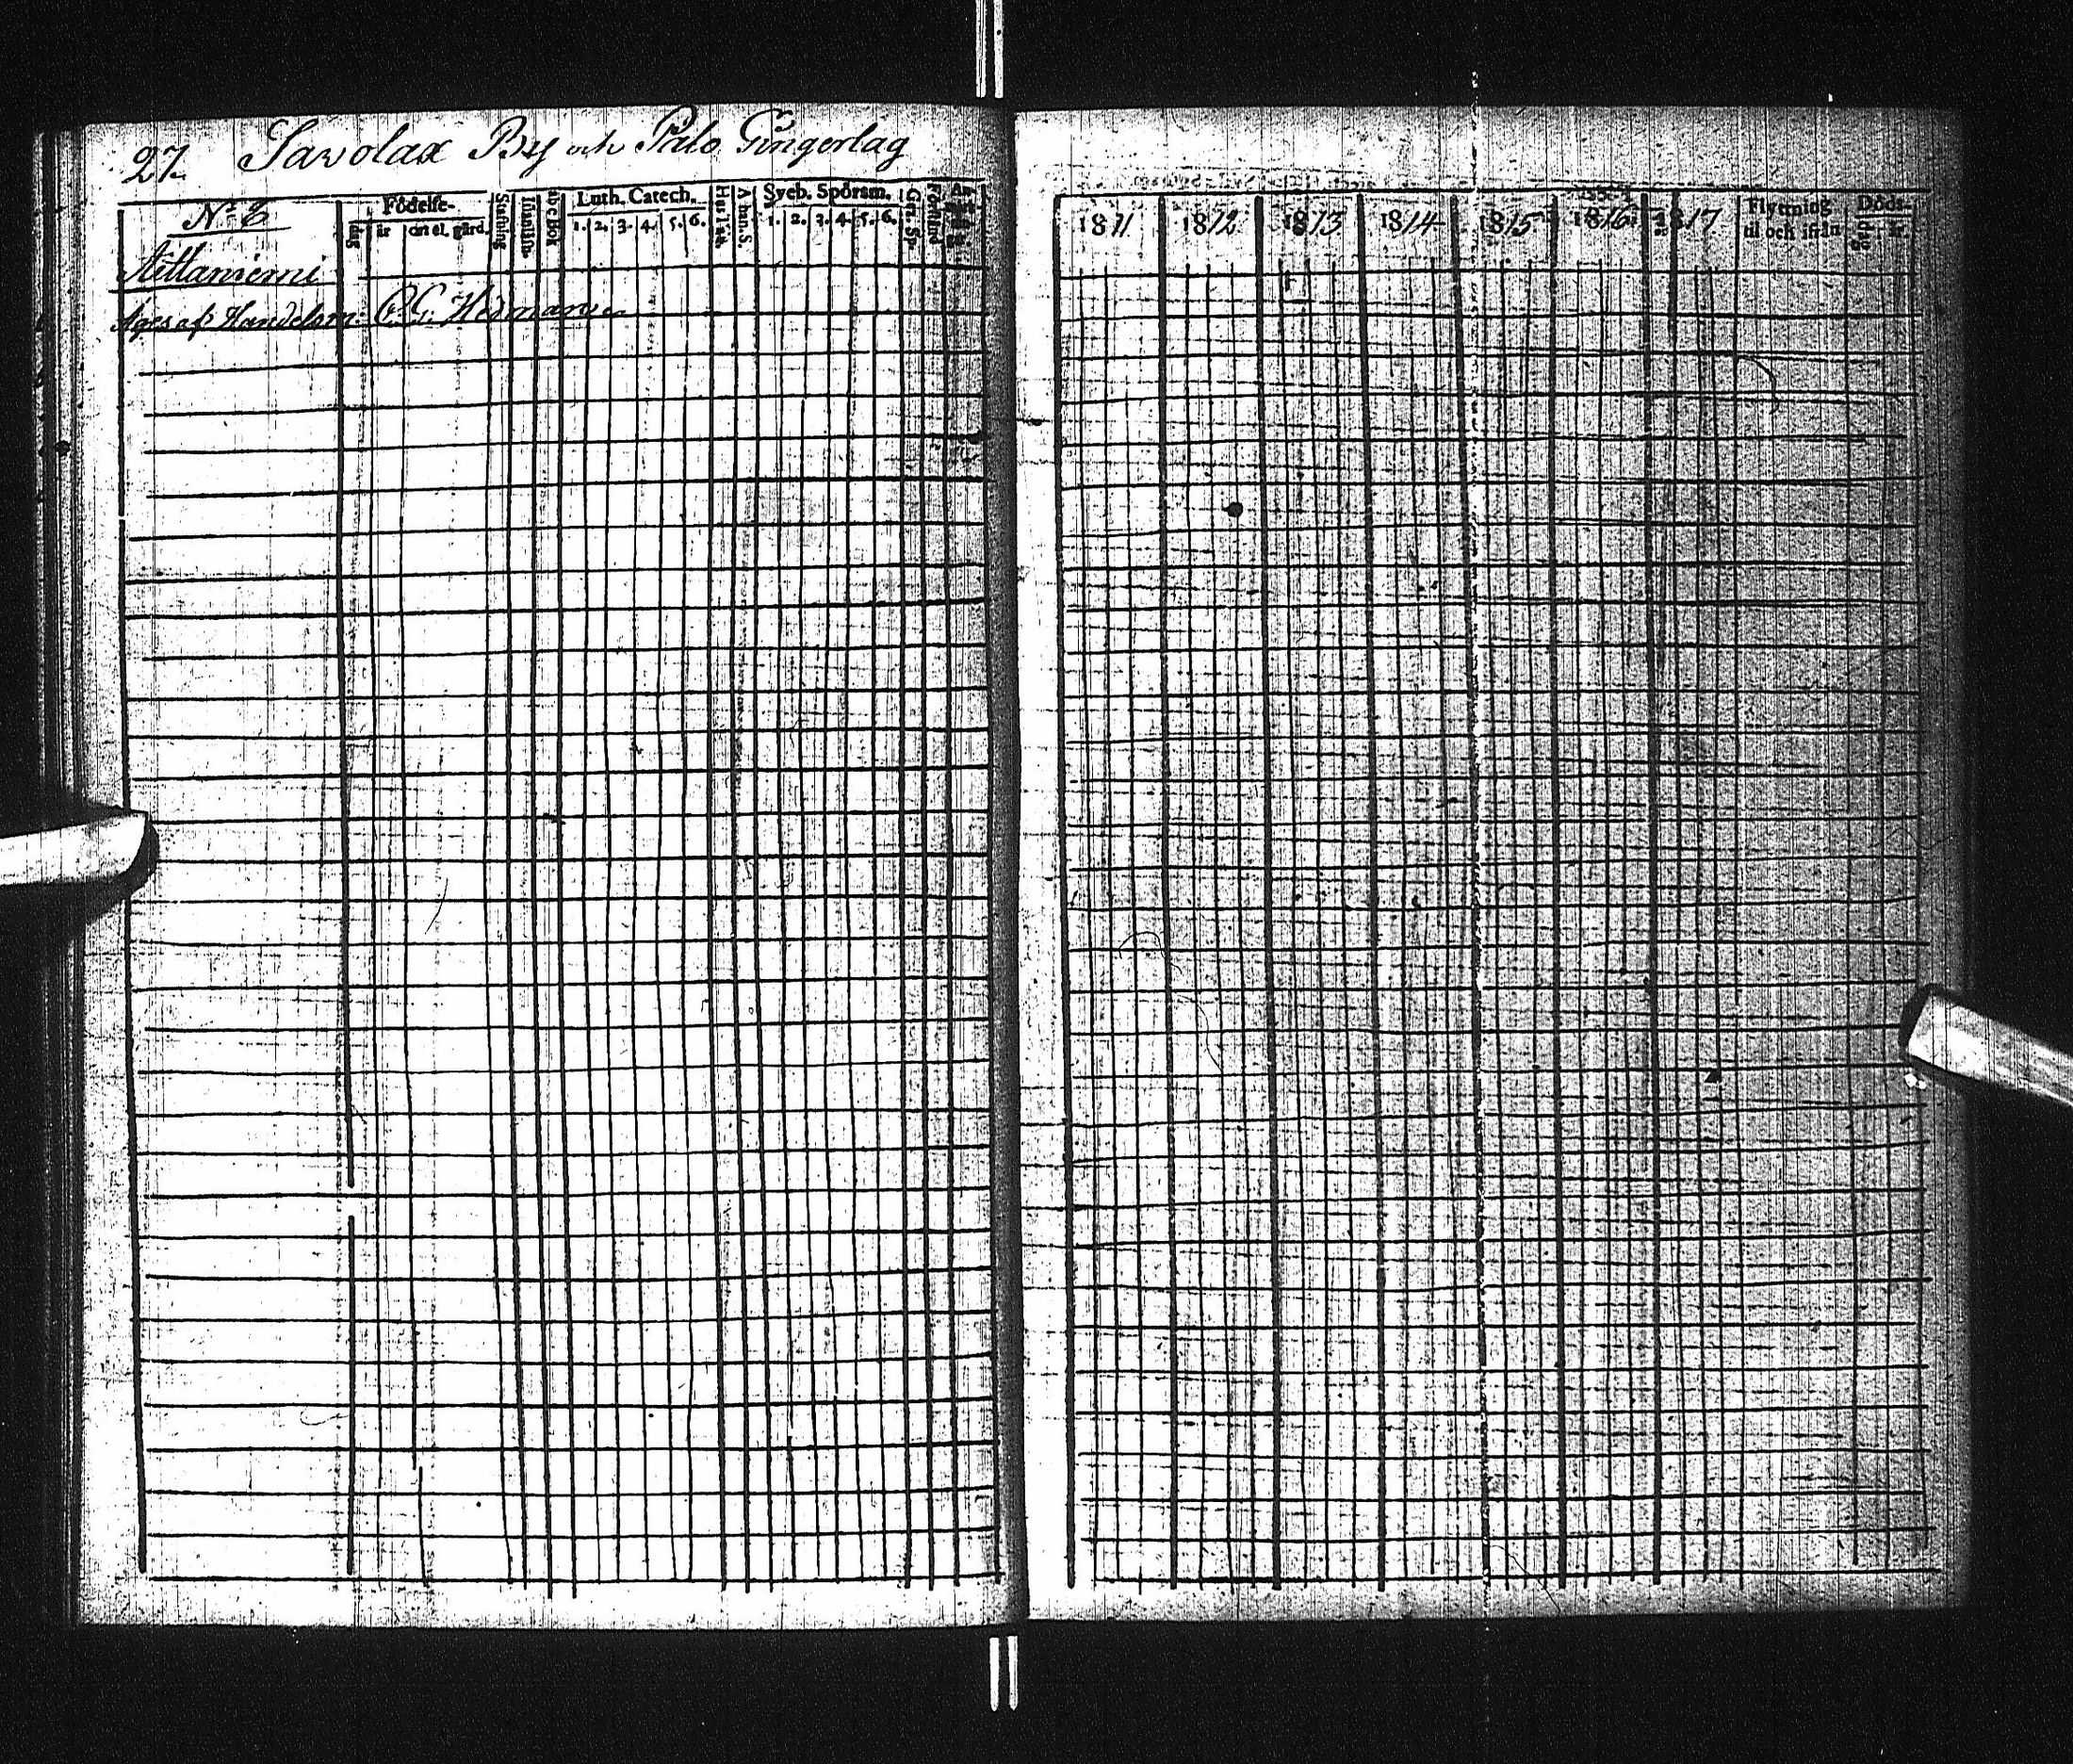 27. Savolax By och Palo Gingerlag
No 6
Födelse-
dag år ort el. gård.
Stafning
Innanläs.
abc Bok
Luth. Catech.
1. 2. 3. 4. 5. 6.
A-han. S.
Sveb. Spörsm.
1. 2. 3. 4. 5. 6.
Gr. Sp.
Förstånd
Aittaniemi
Äges af Handelsm. C. G. Wedman
1811 1812 1813 1814 1815 1816 1817
Flyttning
til och ifrån
Döds-
dag år.